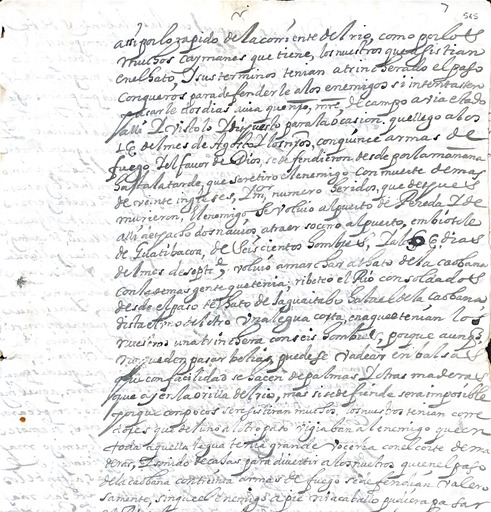 565
assi por lo rapido de la corriente del rio, como por los
muchos caymanes que tiene, los nuestros que assistian
en el hato, y sus terminos tenian atrincherado el paso
con queros para defenderle a los enemigos si intentassen
pasarle dos dias avia que nro, mre, de campo avia estado
alli y vistolo y dispuesto para la ocasion, que llego a los
16 del mes de Agosto y los nros, con quince armas de
fuego y el favor de Dios, se defendieron desde por la mañana
hasta la tarde, que se retiro el enemigo con muerte de mas
de veinte ingleses, y mor numero heridos, que despues
murieron, el enemigo se volvio al puerto de Pereda y de
alli despacho dos navios, a traer socorro al puerto, embiotele
de Guatibacoa, de seiscientos hombres, y a los 6 dias
del mes de septe, volvio a marchar al hato de la cabana
con la demas gente que tenia; ribeteo el Rio con soldados
desde el paso del hato de la guaitabo hasta el de la cabana
dista el uno del otro una legua corta, en a que tenian los
nuestros una trinchera con seis hombres, porque aunq
no pueden pasar bestias, puedese vadear en balsas
que con facilidad se hacen de palmas y otras maderas
que ay en la orilla del rio, mas si se defiende sera imposible
porque con pocos se resistiran muchos, los nuestros tenian corre
dores que del uno al otro paso vigiaban al enemigo que en
toda aquella legua tenia grande voceria con el corte de ma
deras, y sonido de caxas para divertir a los nuestros que en el paso
de la cabana con treinta armas de fuego se defendian valero
samente, sin que el enemigo a pie ni a caballo pudiera pasar